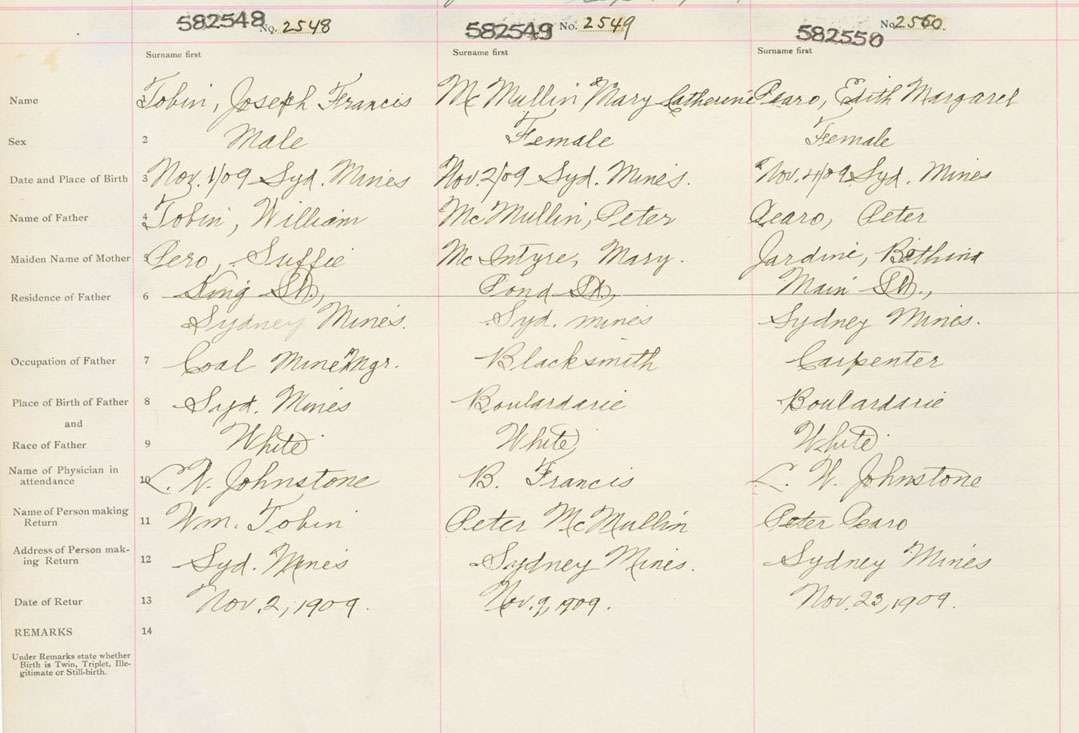 582548 No. 2548 582549 No. 2549 582550 No. 2550
Surname first Surname first Surname first
Name Tobin, Joseph Francis McMullin Mary Catherine Pearo, Edith Margaret
Sex 2 Male Female Female
Date and Place of Birth 3 Nov. 1/09 Syd. Mines Nov. 2/09 Syd. Mines. Nov. 4/09 Syd. Mines
Name of Father 4 Tobin, William McMullin, Peter Pearo, Peter
Maiden Name of Mother 5 Pero, Suffie McIntyre, Mary. Jardine, Bethina
Residence of Father 6 King St, Pond St, Main St.,
Sydney Mines. Syd. mines Sydney Mines.
Occupation of Father 7 Coal Mine Mgr. Blacksmith Carpenter
Place of Birth of Father 8 Syd. Mines Boulardarie Boulardarie
and
Race of Father 9 White White White
Name of Physician in
attendance 10 L. W. Johnstone B. Francis L. W. Johnstone
Name of Person making
Return 11 Wm. Tobin Peter McMullin Peter Pearo
Address of Person mak-
ing Return 12 Syd. Mines Sydney Mines. Sydney Mines
Date of Retur 13 Nov. 2, 1909. Nov. 9, 1909. Nov. 23, 1909.
REMARKS 14
Under Remarks state whether
Birth is Twin, Triplet, Ille-
gitimate or Still-birth.